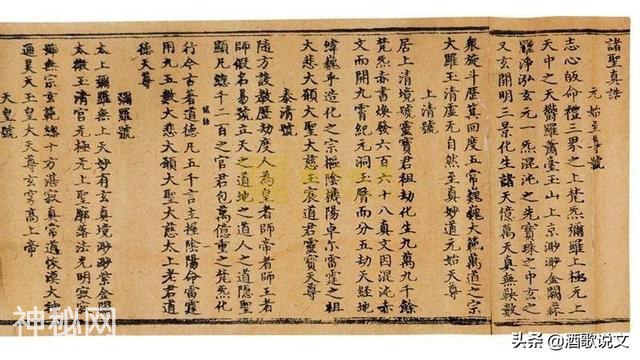 諸聖真誥
元始至尊號
志心皈命禮三界之上梵炁彌羅上極无上
天中之天鬱羅蕭臺玉山上京渺渺金闕森
羅淨泓玄元一炁混沌之先寶珠之中玄之
又玄開明三景化生諸天億萬天真無鞅數
衆旋斗歷箕回度五常巍巍大範萬道之宗
大羅玉清虛无自然至真妙道元始天尊
上清號
居上清境號靈寶君祖劫化生九萬九千餘
梵炁赤書煥發六百六十八真文因混沌赤
文而開九霄紀元洞玉曆而分五劫天經地
緯巍乎造化之宗樞陰機陽卓尔雷霆之祖
大悲大願大聖大慈玉宸道君靈寶天尊
泰清號
隨方設教歷劫度人為皇者師帝者師王者
師假名易號立天之道地之道人之道隱聖
顯凡總千二百之官君包萬億重之梵炁化
行今古著道德凡五千言主握陰陽命雷霆
用九五數大悲大願大聖大慈太上老君道
德天尊
彌羅號
太上彌羅無上天妙有玄真境渺渺紫金
太微玉清宮无極无上聖廓落法光明寂寂
无宗玄範總十方湛寂真常道恢漠大神
通昊天玉皇大天尊玄穹高上帝
天皇號
神秘网
头条 @酒歌说文